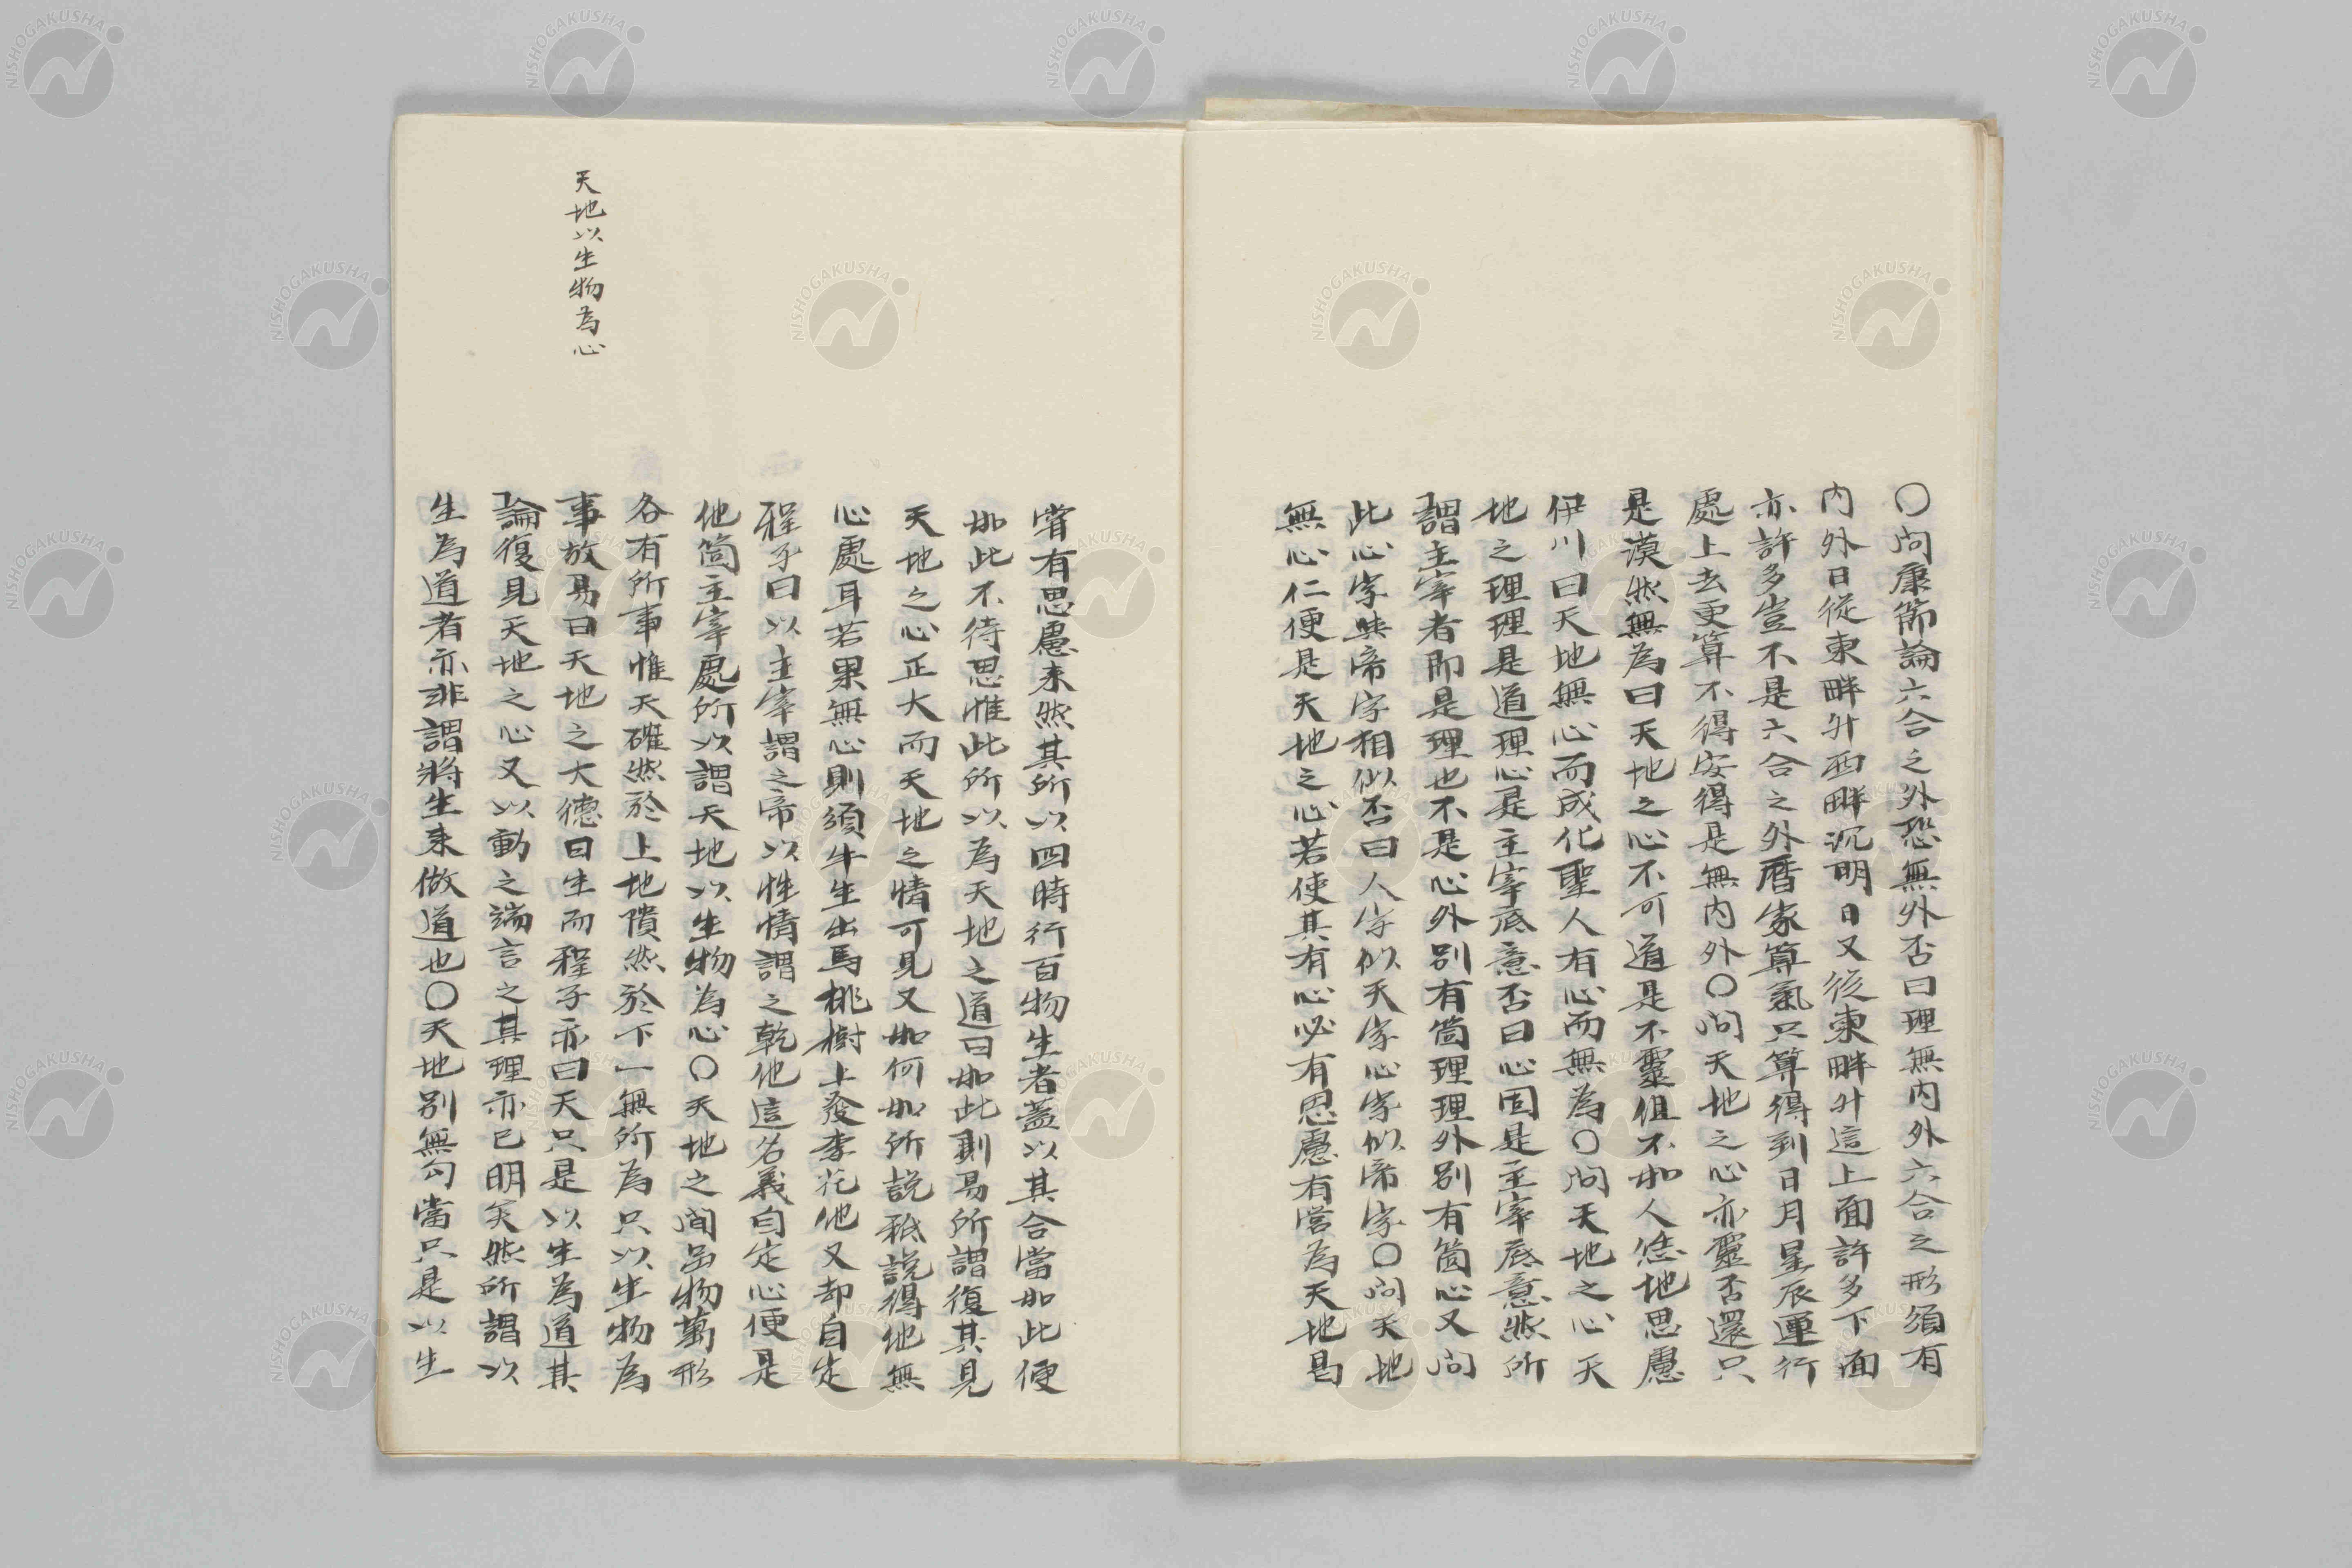 ○問康節論六合之外恐無外否曰理無内外六合之形須有
内外日從東畔升西畔沉明日又從東畔升這上面許多下面
亦許多豈不是六合之外曆家算氣只算得到日月星辰運行
處上去更算不得安得是無内外○問天地之心亦靈否還只
是漠然無為曰天地之心不可道是不靈但不如人恁地思慮
伊川曰天地無心而成化聖人有心而無為○問天地之心天
地之理理是道理心是主宰底意否曰心固是主宰底意然所
謂主宰者即是理也不是心外別有箇理理外別有箇心又問
此心字與帝字相似否曰人字似天字心字似帝字○問天地
無心仁便是天地之心若使其有心必有思慮有営為天地曷
甞有思慮来然其所以四時行百物生者蓋以其合當如此便
如此不待思惟此所以為天地之道曰如此則易所謂復其見
天地之心正大而天地之情可見又如何如所說秪說得他無
心處耳若果無心則須牛生出馬桃樹上發李花他又却自定
程子曰以主宰謂之帝以性情謂之乾他這名義自定心便是
他箇主宰處所以謂天地以生物為心○天地之間品物萬形
各有所事惟天確然於上地隤然於下一無所為只以生物為
事故易曰天地之大德曰生而程子亦曰天只是以生為道其
論復見天地之心又以動之端言之其理亦已明矣然所謂以
生為道者亦非謂將生来做道也○天地別無勾當只是以生
天地以生物為心
NISHOGAKUSHA